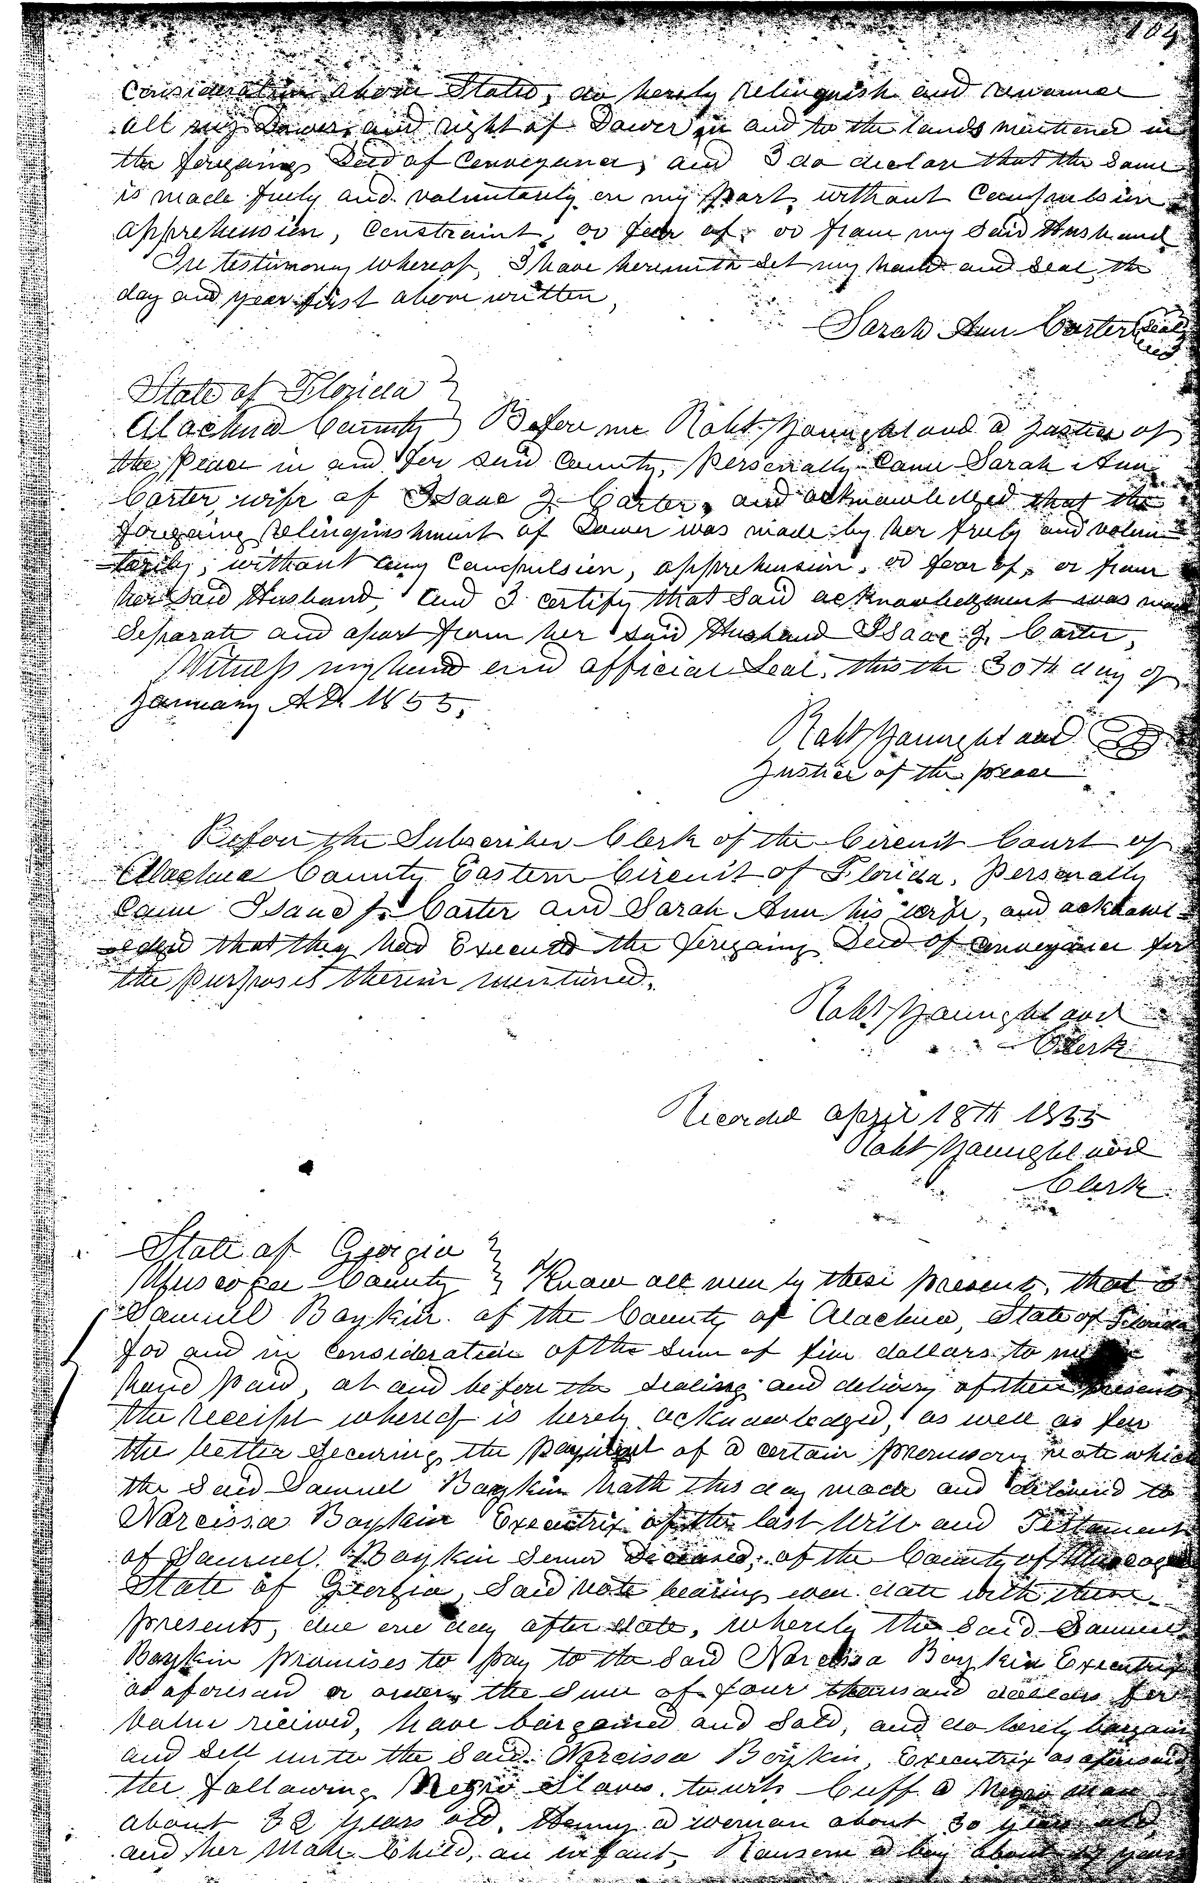 104
Consideration above Stated, do hereby relinquish and renounce
all my Dower, and right of Dower in and to the lands mentioned in
the foregoing Deed of Conveyance, and I do declare that the same
is made freely and voluntarily on my part, without Compulsion
apprehension, Constraint, or fear of, or from my said Husband
In testimony whereof, I have hereunto set my hand and seal, the
day and year first above written,
Sarah Ann Carter Seal
State of Florida }
Alachua County } Before me Robt Youngbland a Justice of
the peace in and for said County, personally Came Sarah Ann
Carter, wife of Isaac J. Carter, and acknowledged that the
foregoing relinquishment of Dower was made by her freely and volun=
=tarily, without any Compulsion, apprehension, or fear of, or from
her said Husband, and I certify that said acknowledgment was made
Separate and apart from her said Husband Isaac J. Carter,
Witness my hand and official Seal, this the 30th day of
January A.D. 1855,
Robt Youngbland
Justice of the peace
Before the Subscriber Clerk of the Circuit Court of
Alachua County Eastern Circuit of Florida, Personally
Came Isaac J. Carter and Sarah Ann his wife, and acknowl=
=edged that they had Executed the foregoing Deed of Conveyance for
the purposes therein mentioned.
Robt Youngbland
Clerk
Recorded April 18th 1855
Robt Youngbland
Clerk
State of Georgia }
Muscogee County } Know all men by these presents, that I
Samuel Boykin of the County of Alachua, State of Florida
for and in Consideration of the Sum of five dollars to me in
hand paid, at and before the Sealing and delivery of these presents
the receipt whereof is hereby acknowledged, as well as for
the better securing the payment of a certain promissory note which
the said Samuel Boykin hath this day made and delivered to
Narcissa Boykin Executrix of the last Will and Testament
of Samuel Boykin Senior Deceased, of the County of Muscogee
State of Georgia, Said note bearing even date with these
presents, due one day after date, whereby the said Samuel
Boykin promises to pay to the said Narcissa Boykin Executrix
as aforesaid or order, the sum of four thousand dollars for
Value received, have bargained and Sold, and do hereby bargain
and Sell unto the said Narcissa Boykin, Executrix as aforesaid
the following Negro Slaves, towit, Cuff a Negro man
about 32 years old, Henny a woman about 30 years old
and her Male Child, an infant, Ransom a boy about years